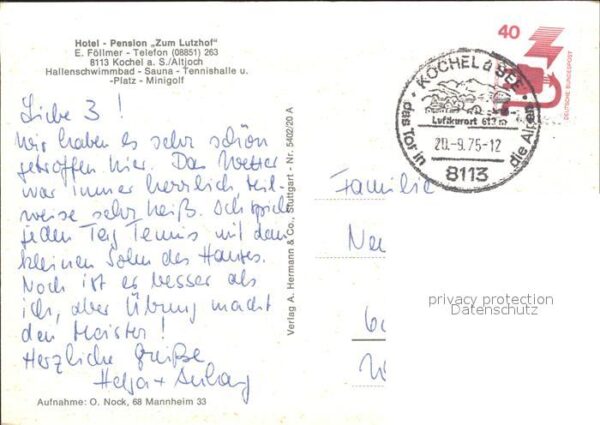 Hotel - Pension „Zum Lutzhof"
E. Föllmer - Telefon (08851) 263
8113 Kochel a. S./Altjoch
Hallenschwimmbad - Sauna - Tennishalle u.
-Platz - Minigolf
Liebe 3 !
Wir haben es sehr schön
getroffen hier. Das Wetter
war immer herrlich, teil-
weise sehr heiß. Ich spiele
jeden Tag Tennis mit dem
kleinen Sohn des Hauses.
Noch ist er besser als
ich, aber Übung macht
den Meister!
Herzliche Grüße
Helga + Anhang
Aufnahme: O. Nock, 68 Mannheim 33
Verlag A. Hermann & Co., Stuttgart - Nr. 5402/20 A
40
DEUTSCHE BUNDESPOST
KOCHEL a SEE
Luftkurort 613 m
20.-9.75-12
das Tor in die Alpen
8113
Familie
privacy protection
Datenschutz